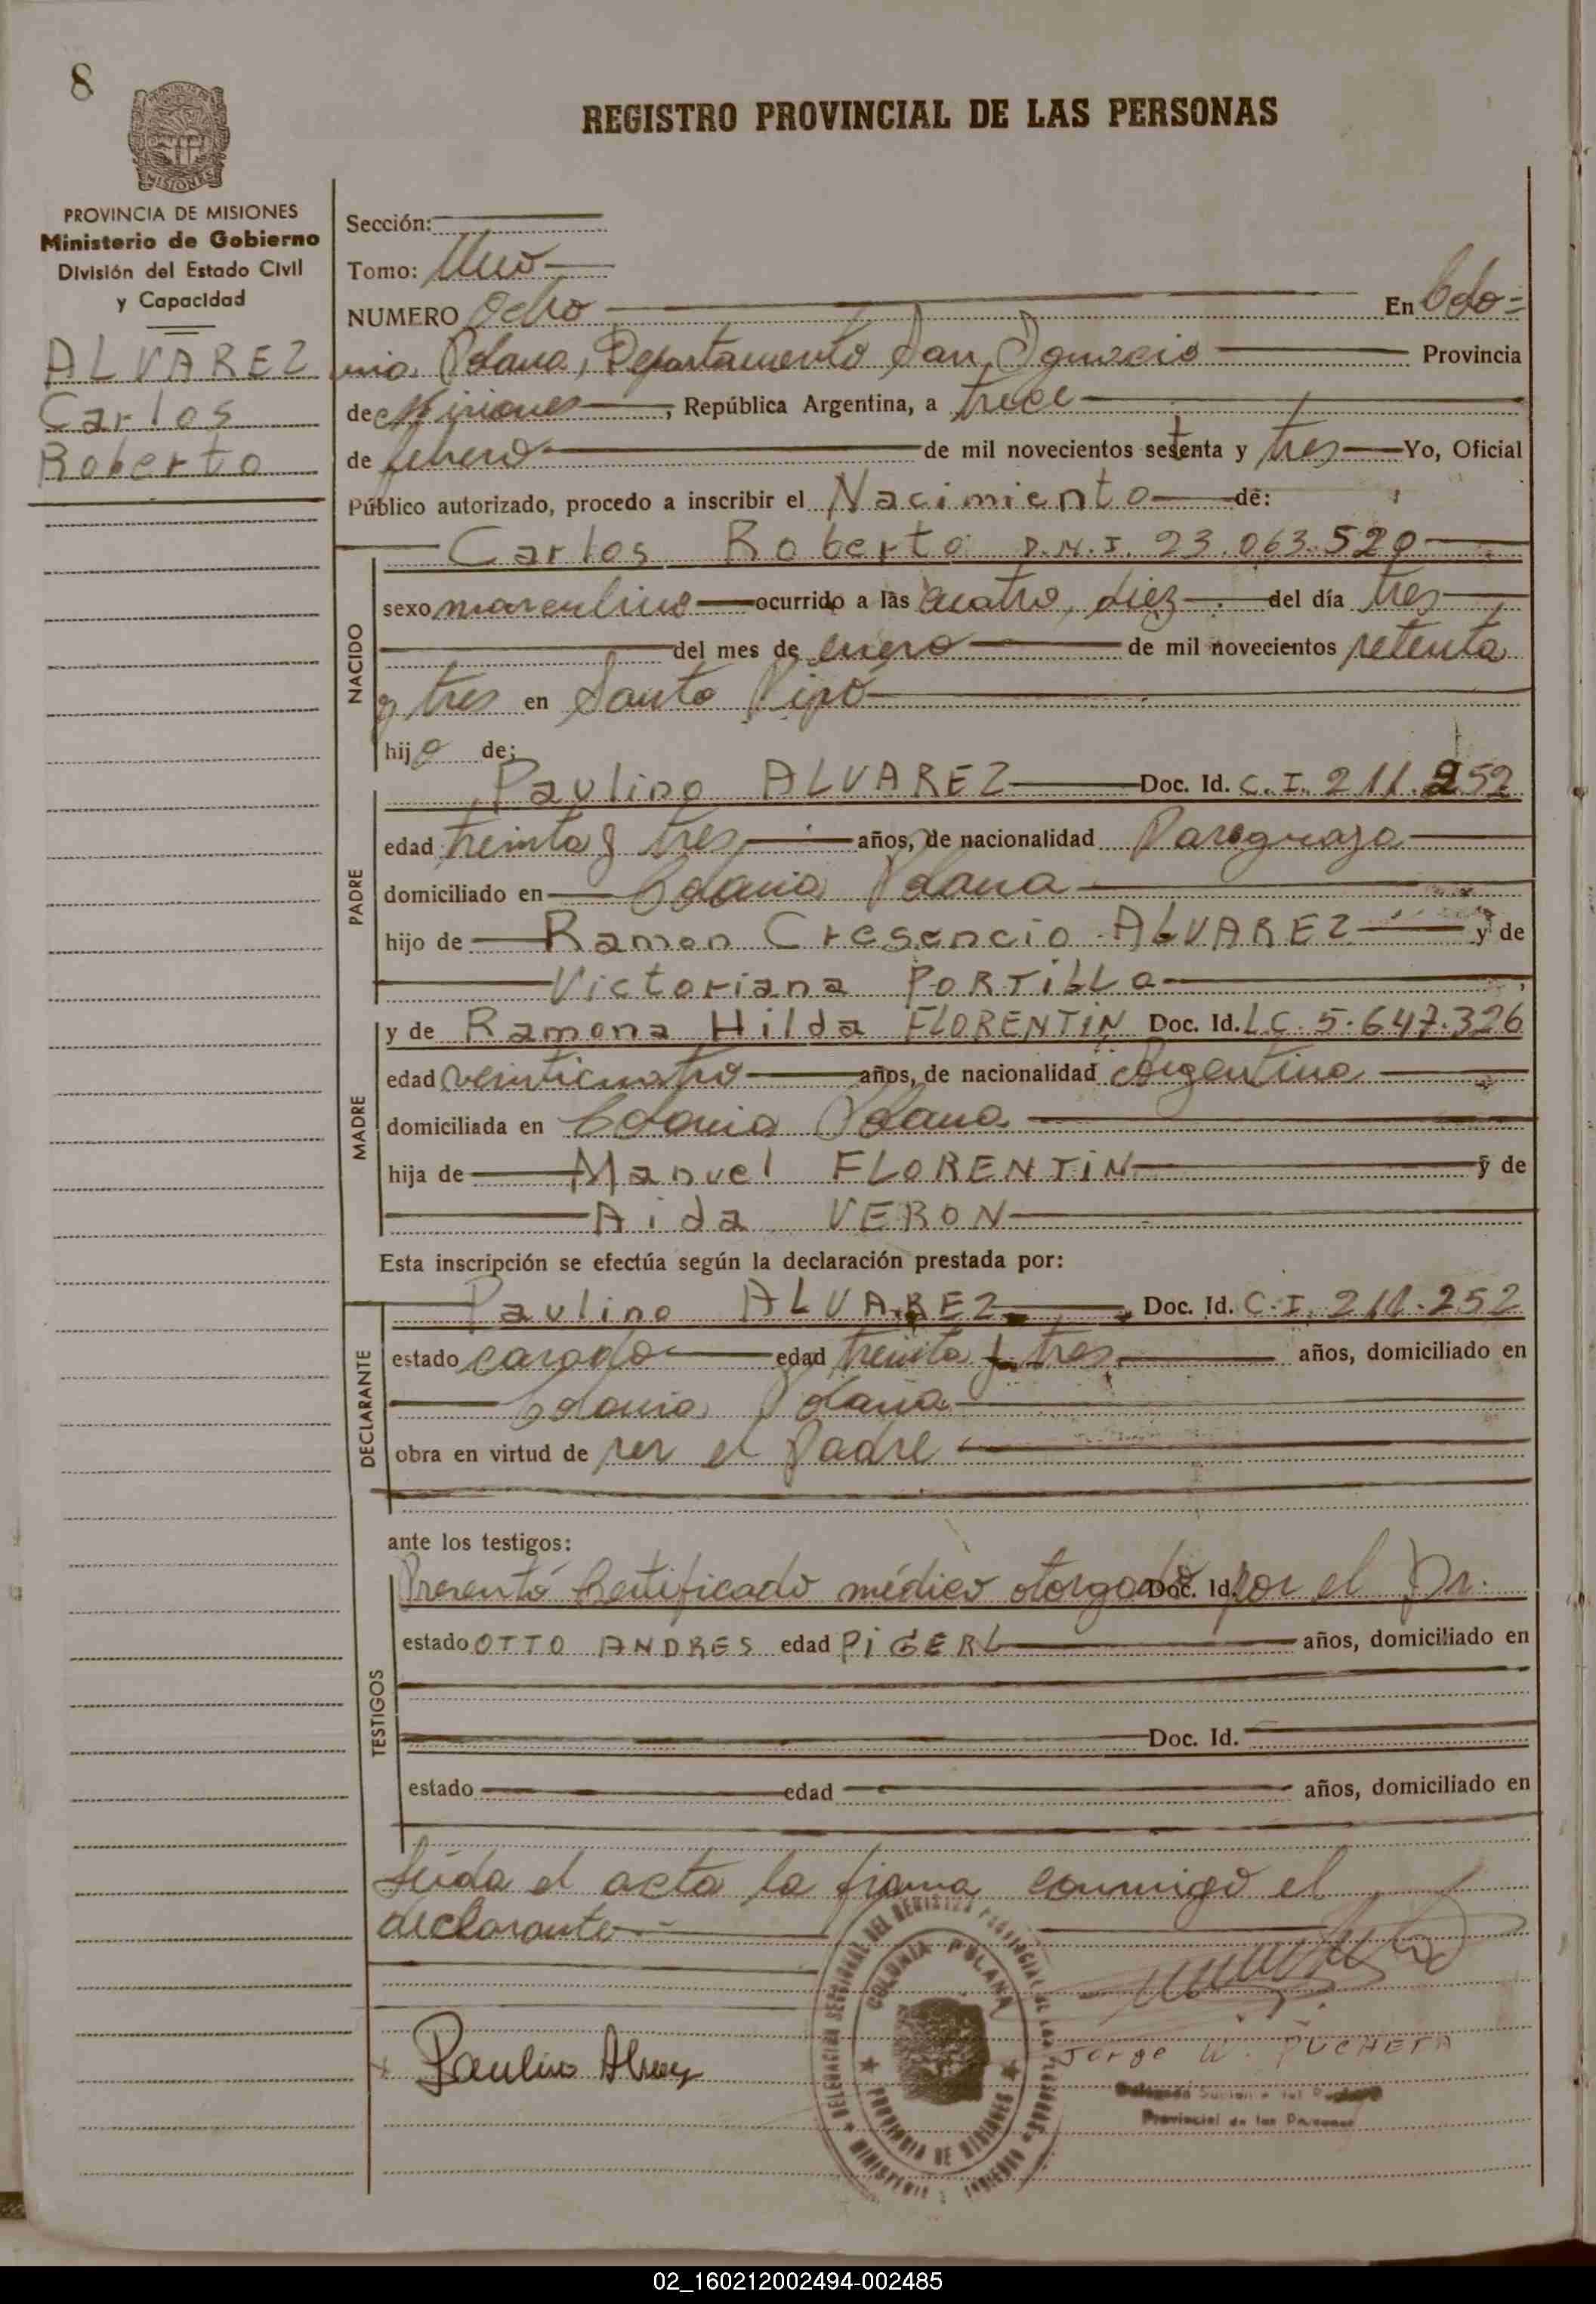 8
REGISTRO PROVINCIAL DE LAS PERSONAS
MISIONES
PROVINCIA DE MISIONES
Ministerio de Gobierno
División del Estado Civil
y Capacidad
ALVAREZ
Carlos
Roberto
Sección:
Tomo: Uno
NUMERO Ocho En Colo=
nia Polana, Departamento San Ignacio Provincia
de Misiones, República Argentina, a trece
de febrero de mil novecientos setenta y tres Yo, Oficial
Público autorizado, procedo a inscribir el Nacimiento de:
Carlos Roberto D.N.I. 23.063.520
NACIDO
sexo masculino ocurrido a las cuatro, diez del día tres
del mes de enero de mil novecientos setenta
y tres en Santo Pipó
hijo de:
PADRE
Paulino ALVAREZ Doc. Id. C.I. 211.252
edad treinta y tres años, de nacionalidad Paraguaya
domiciliado en Colonia Polana
hijo de Ramon Cresencio ALVAREZ y de
Victoriana PORTILLO
MADRE
y de Ramona Hilda FLORENTIN Doc. Id. LC. 5.647.326
edad veinticuatro años, de nacionalidad Argentina
domiciliada en Colonia Polana
hija de Manuel FLORENTIN y de
Aida VERON
Esta inscripción se efectúa según la declaración prestada por:
DECLARANTE
Paulino ALVAREZ Doc. Id. C.I. 211.252
estado casado edad treinta y tres años, domiciliado en
Colonia Polana
obra en virtud de ser el Padre
ante los testigos:
TESTIGOS
Presentó Certificado médico otorgado Doc. Id. por el Dr.
estado OTTO ANDRES edad PIGERL años, domiciliado en
Doc. Id.
estado edad años, domiciliado en
Leída el acta la firma conmigo el
declarante
DELEGACION SECCIONAL DEL REGISTRO PROVINCIAL DE LAS PERSONAS
COLONIA POLANA
PROVINCIA DE MISIONES
MINISTERIO GOBIERNO
Paulino Alvarez
Jorge W. PUCHETA
Provincial de las Personas
02_160212002494-002485